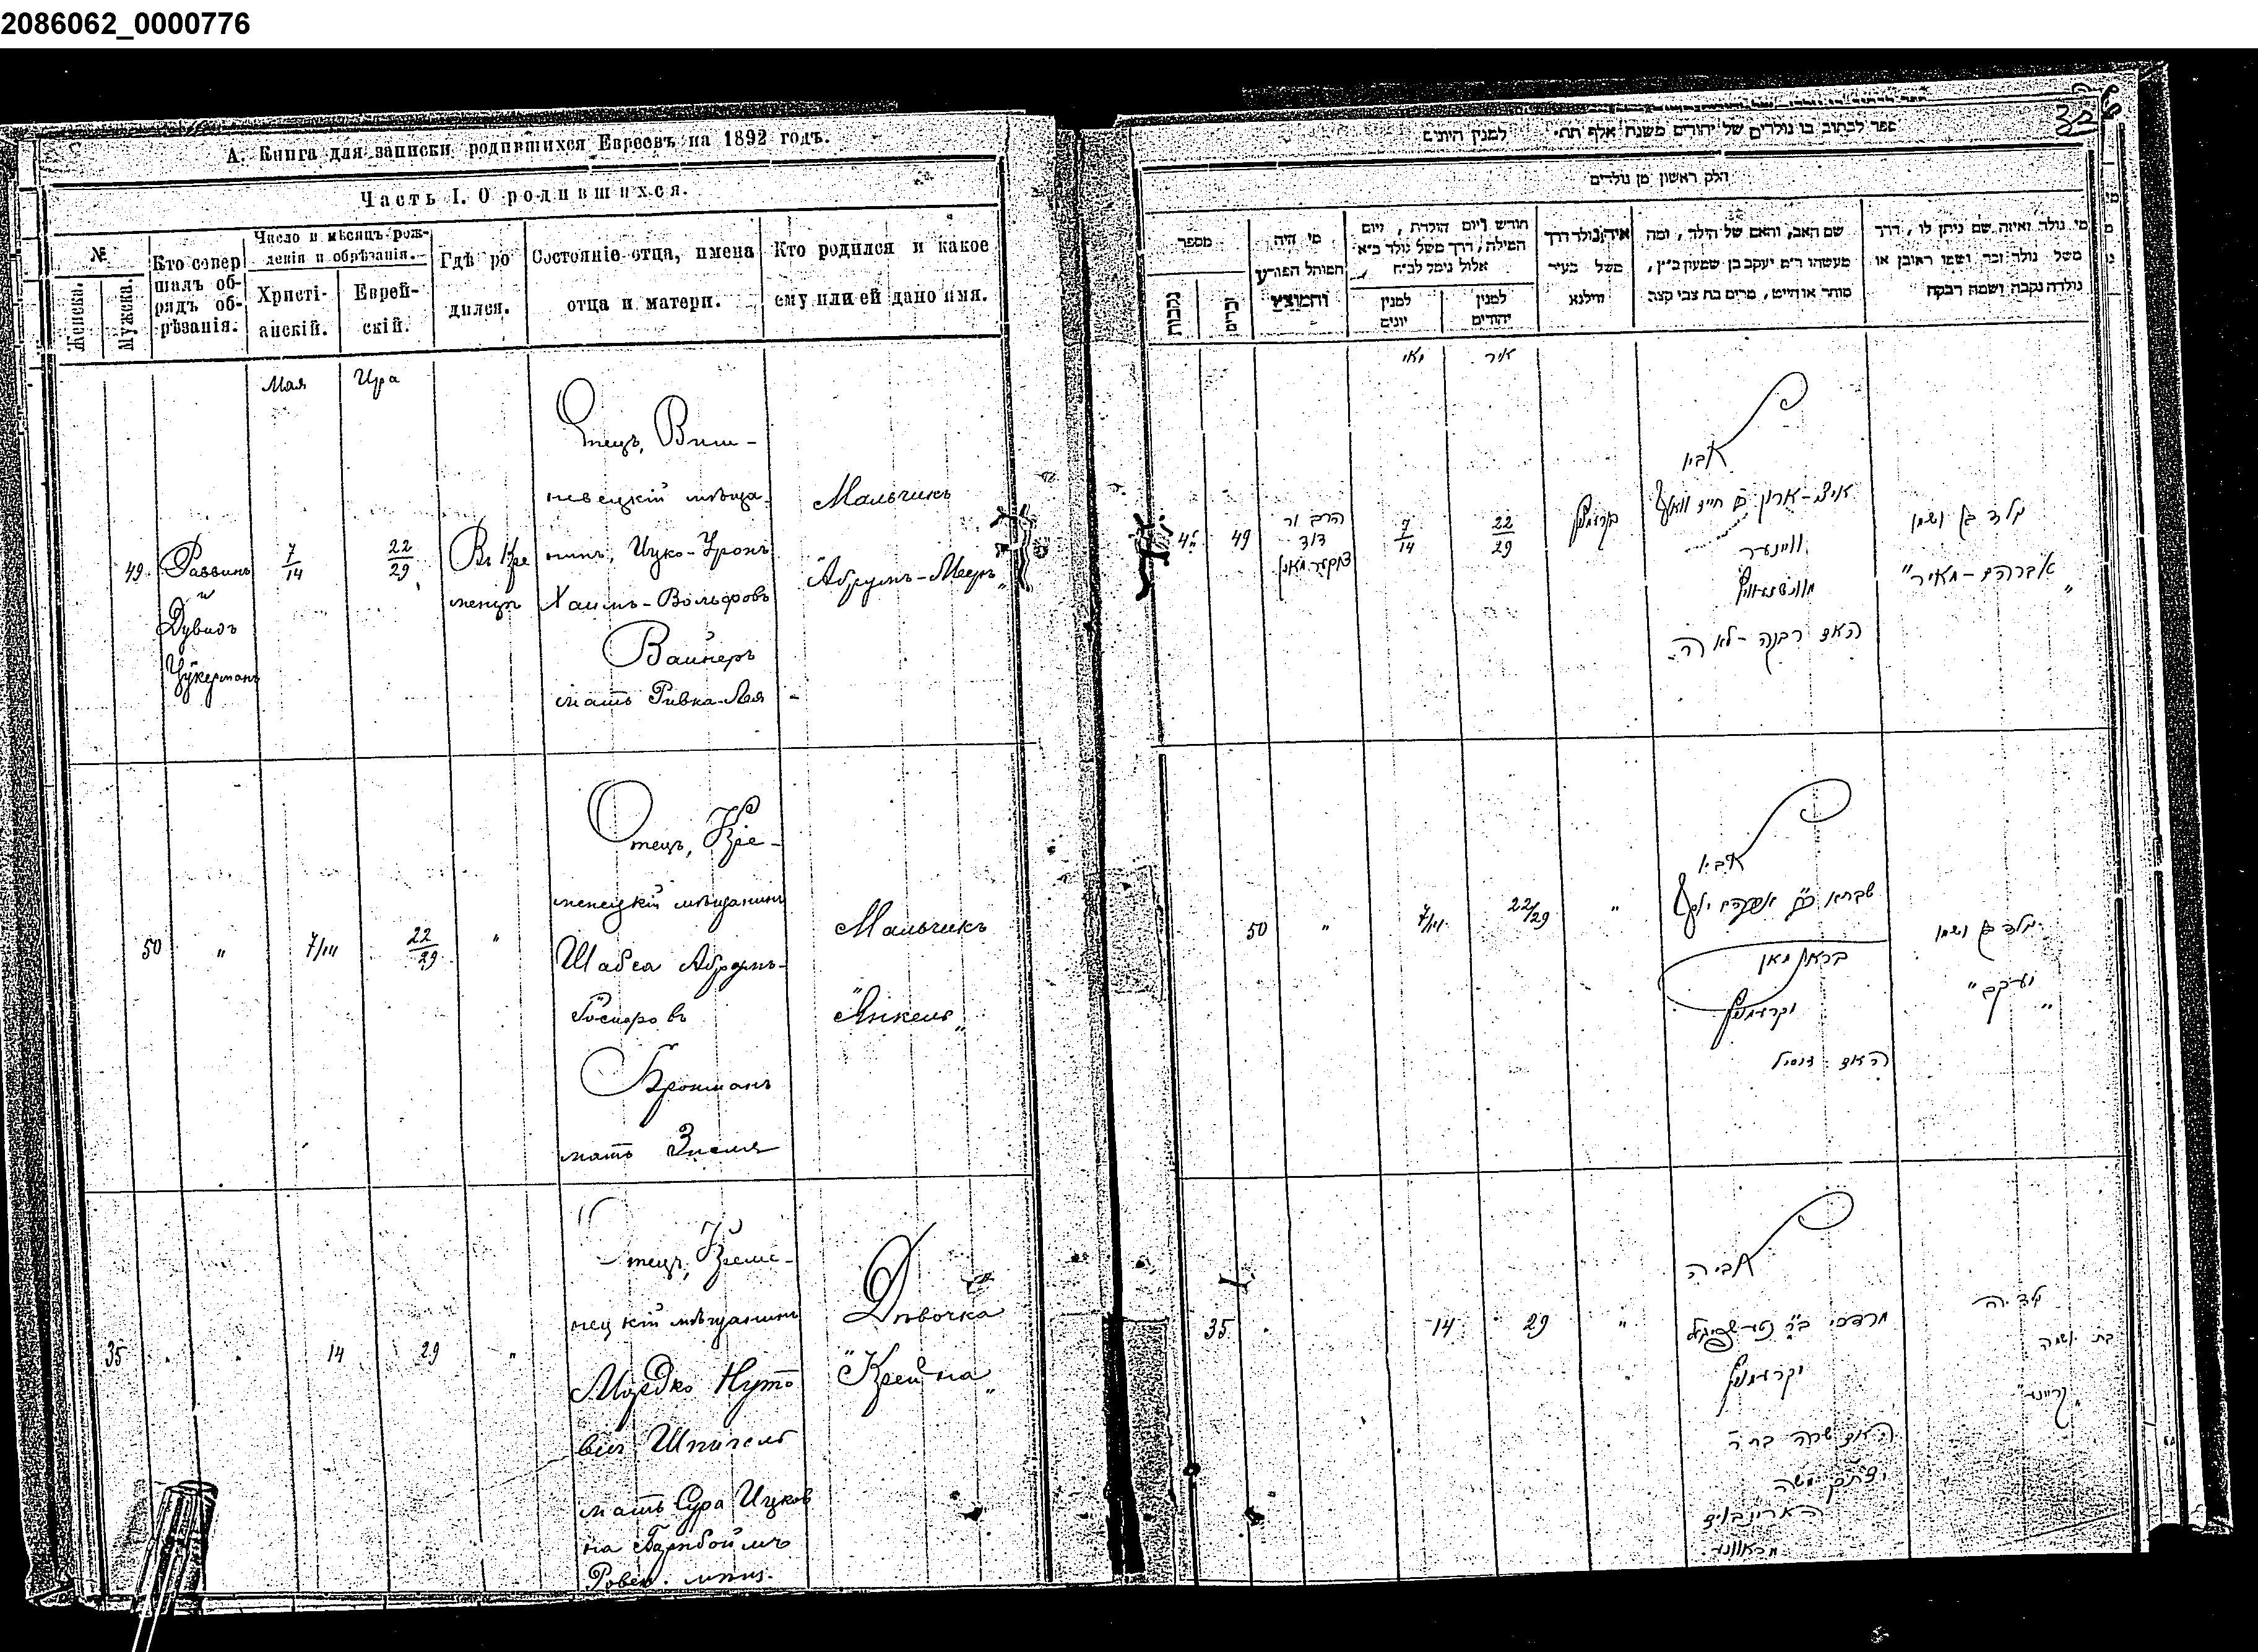 2086062_0000776
А. Книга для записки родившихся Евреевъ на 1892 годъ.
Часть I. О родившихся.
№
Женска.
Мужска.
Кто совер
шалъ об-
рядъ об-
рѣзанія.
Число и мѣсяцъ рож-
денія и обрѣзанія.
Христі-
анскій.
Еврей-
скій.
Гдѣ ро
дился.
Состояніе отца, имена
отца и матери.
Кто родился и какое
ему или ей дано имя.
Мая
Ира
49
Раввинъ
и
Дувидъ
Цукерманъ
7
14
22
29
Въ Кре
менцѣ
Отецъ, Виш-
невецкій мѣща-
нинъ, Ицко-Уронъ
Хаимъ-Вольфовъ
Вайнеръ
мать Ривка-Лея
Мальчикъ
"Абрумъ-Мееръ"
50
"
7/14
22
29
"
Отецъ, Кре-
менецкій мѣщанинъ
Шабса Абрумъ-
Мальчикъ
"Янкель"
мать
35
14
29
"
Отецъ, Креме-
нецкій мѣщанинъ
Мордко Нуто
вичъ Шпигель
мать Сура Ицков
на
Ровен. мѣщ.
Дѣвочка
"Крейна"
ספר לכתוב בו נולדים של יהודים משנת אלף תתי׳ למנין היונים
חלק ראשון מן נולדים
מספר
נקבות
זכרים
מי היה
המוהל הפורע
והמוצץ
חודש ויום הולדת, ויום
המילה, דרך משל נולד ב״א
אלול נימל לב״ח
למנין
יונים
למנין
יהודים
איה נולד דרך
משל בעיר
ווילנא
שם האב, והאם של הילד, ומה
מעשהו ד״מ יעקב בן שמעון כ״ץ,
סוחר או חייט, מרים בת צבי קצב
מי נולד ואיזה שם ניתן לו, דרך
משל נולד זכר ושמו ראובן או
נולדה נקבה ושמה רבקה
מאי
איר
49
הרב ור
דוד
צוקערמאן
7
14
22
29
קרעמניץ
אביו
וויינער
האם רבקה-לאה
ילד זכר ושמו
"אברהם-מאיר"
50
"
7/14
22/29
"
אביו
מקרעמניץ
ילד זכר ושמו
"יעקב"
35
14
29
"
אביה
מקרעמניץ
האם שרה בת ר׳